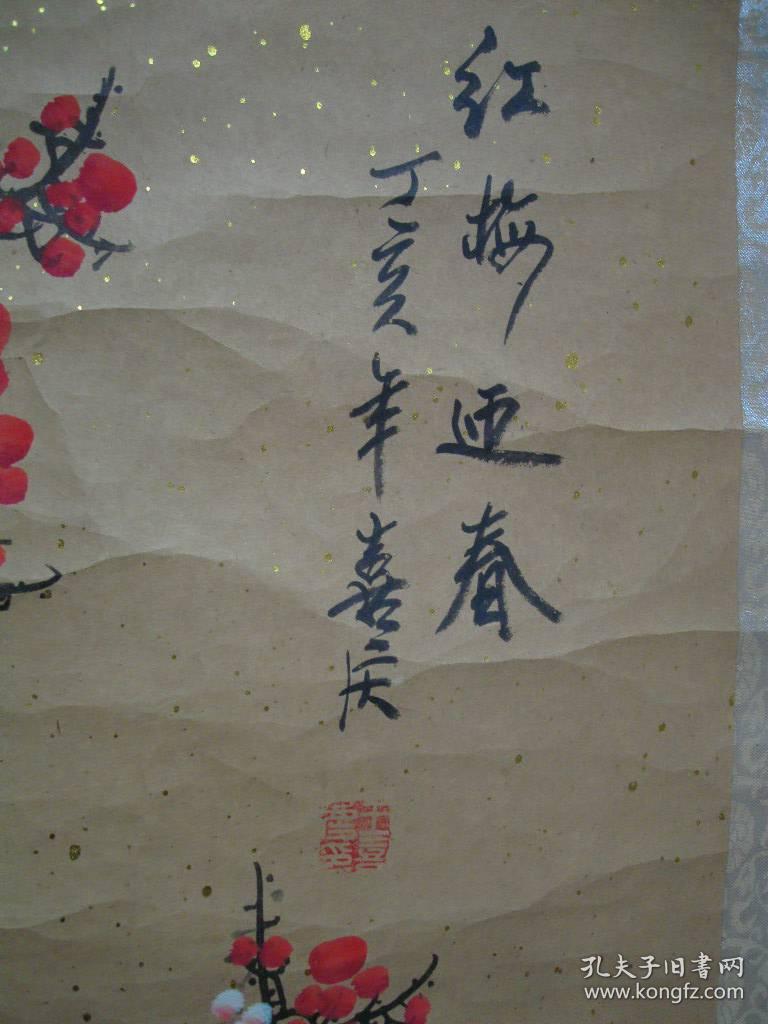 红梅迎春
丁亥年喜庆
孔夫子旧书网
www.kongfz.com